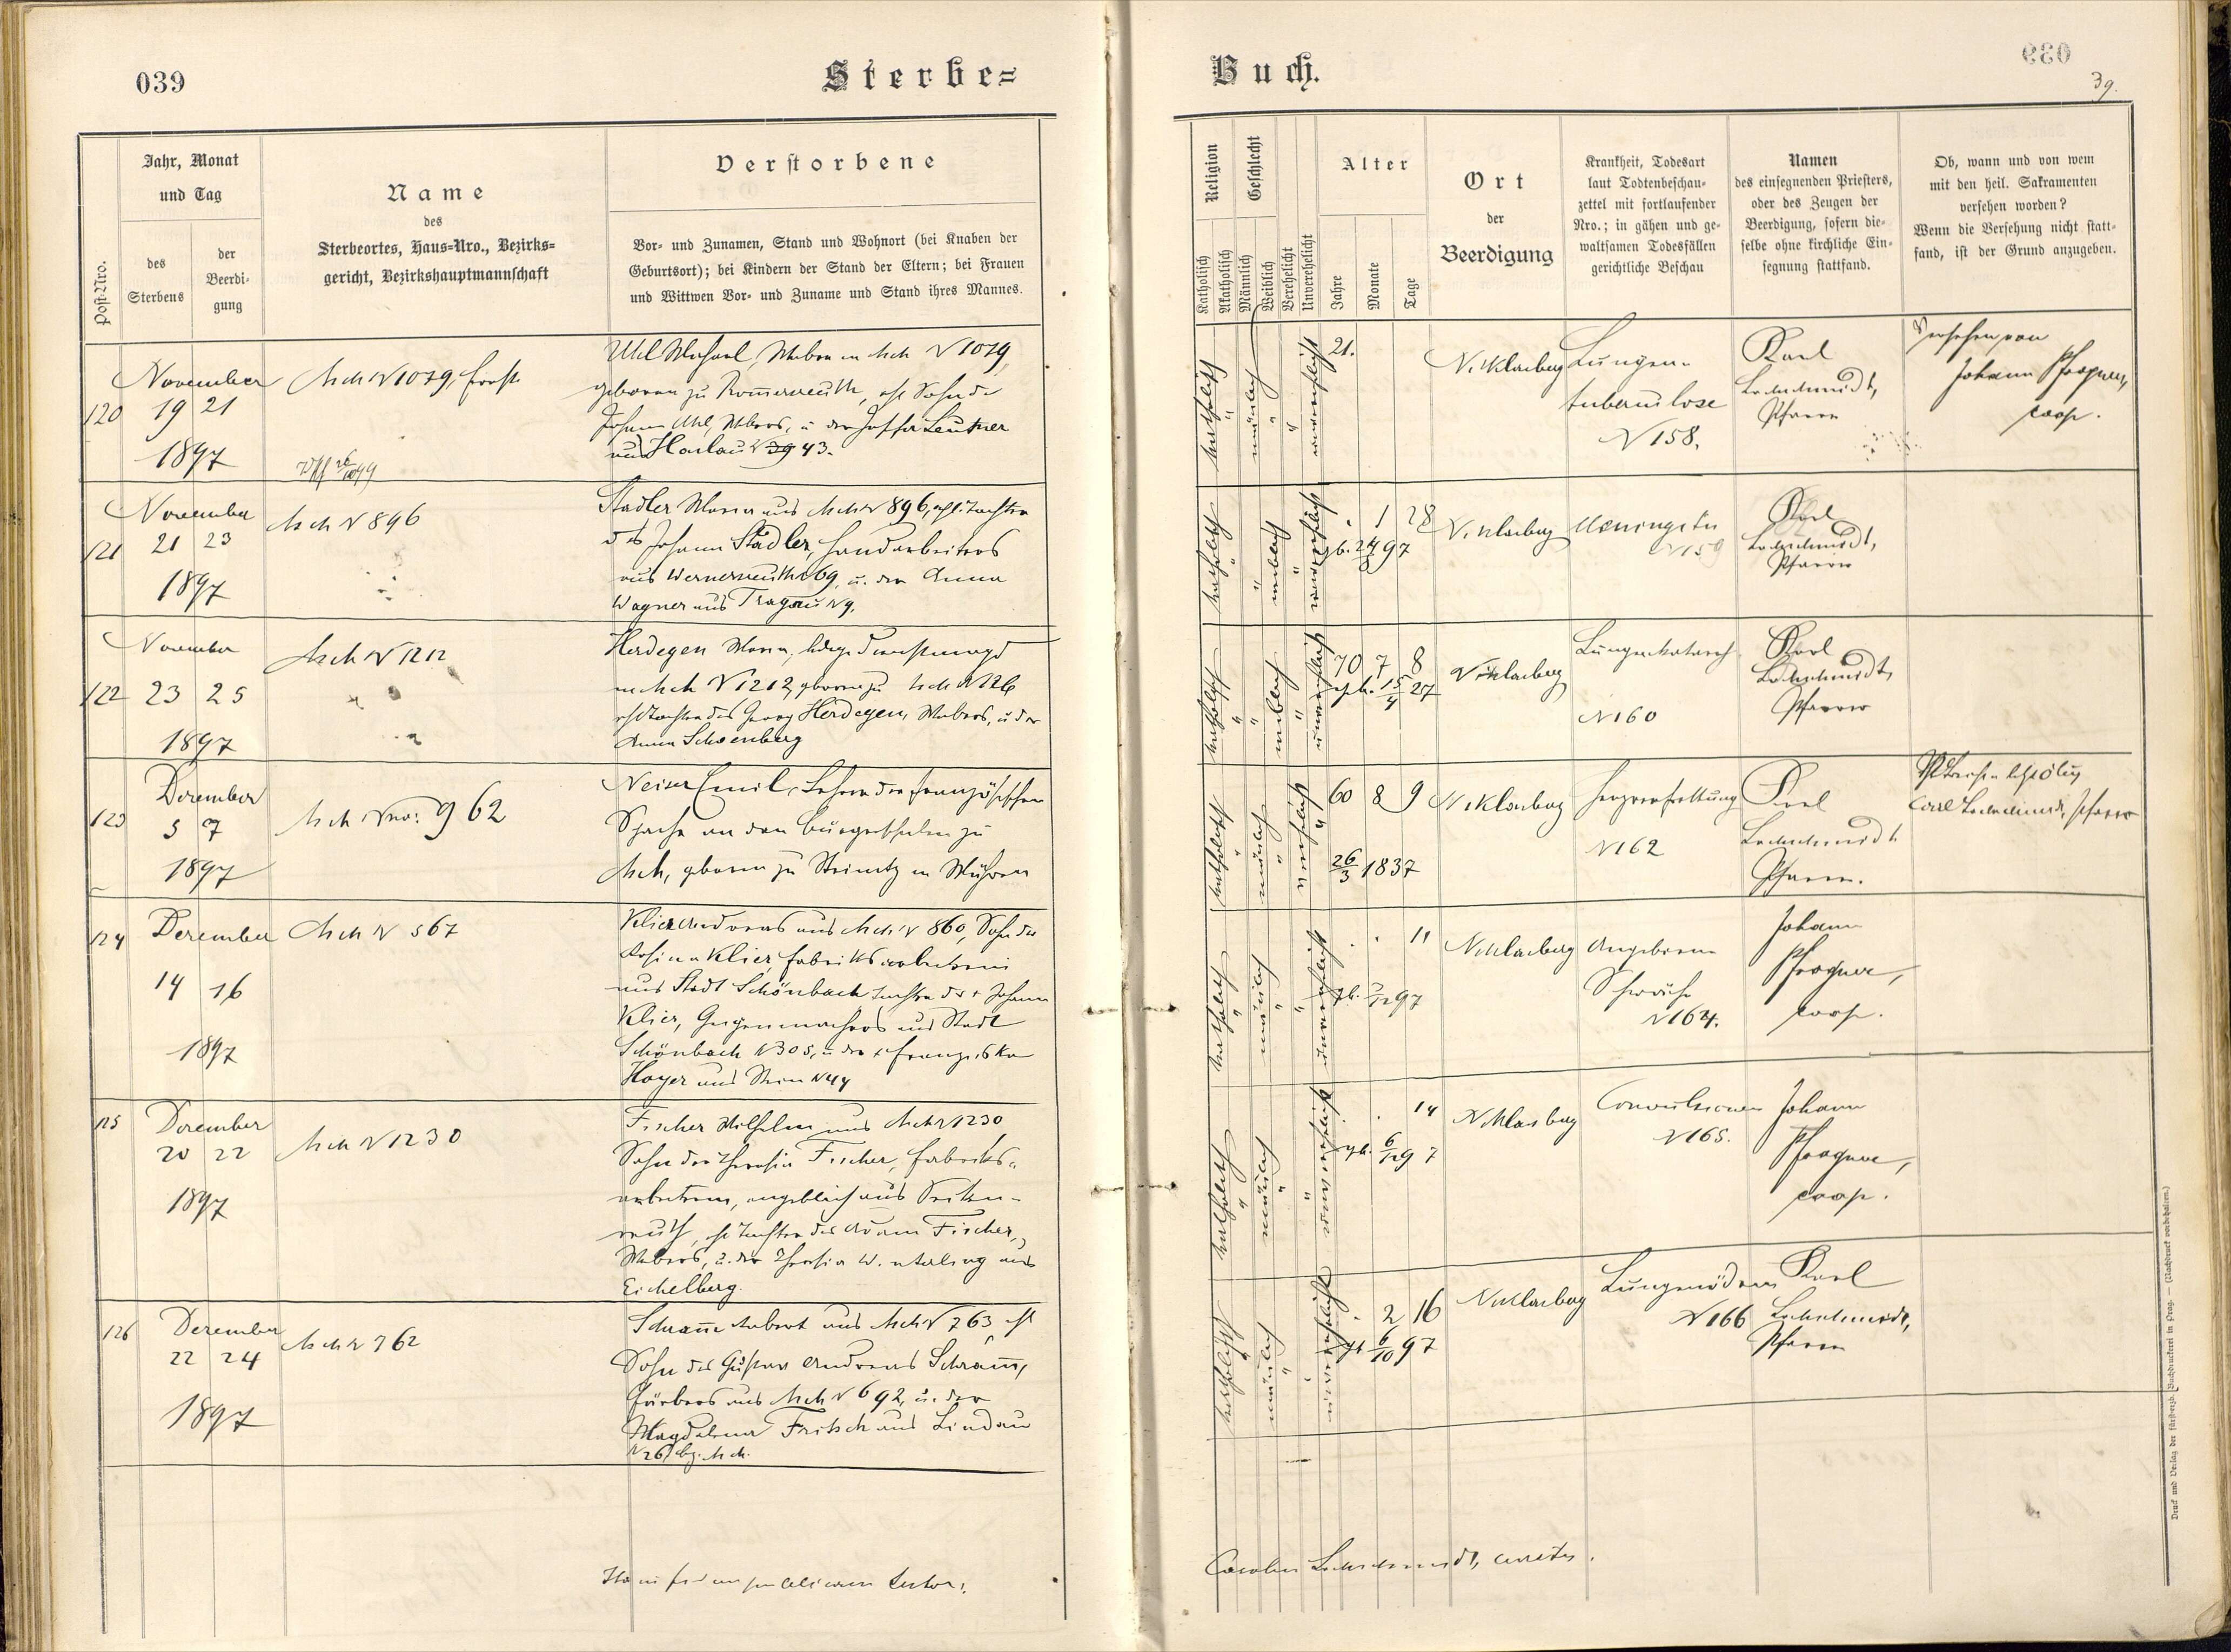 039
Sterbe=
Jahr, Monat
und Tag
Post-Nro.
des
Sterbens
der
Beerdi-
gung
Name
des
Sterbeortes, Haus-Nro., Bezirks=
gericht, Bezirkshauptmannschaft
Verstorbene
Vor- und Zunamen, Stand und Wohnort (bei Knaben der
Geburtsort); bei Kindern der Stand der Eltern; bei Frauen
und Wittwen Vor- und Zuname und Stand ihres Mannes.
120
November
19 21
1897
Asch N 1079,
Uhl Michael, Weber in Asch N 1079,
geboren zu Rommersreuth, ehl. Sohn des
Johann Uhl, Webers, u. der Leutner
aus Haslau N 39 43.
121
November
21 23
1897
Asch N 896
Stadler Maria aus Asch N 896, ehl. Tochter
des Johann Stadler, Handarbeiters
aus Wernersreuth N 69, u. der Anna
Wagner aus Tragau N 9.
122
November
23 25
1897
Asch N 1212
Herdegen Maria, ledige Dienstmagd
in Asch N 1212, geboren zu Asch N 126
ehl. Tochter des Georg Herdegen, Webers, u. der
Anna Schoenberg
123
December
5 7
1897
Asch Nro: 962
Neiser Emil, Lehrer der französischen
Sprache an der Bürgerschule zu
Asch, geboren zu in Mähren
124
December
14 16
1897
Asch N 567
Klier Andreas aus Asch N 860, Sohn der
Rosina Klier, Fabriksarbeiterin
aus Stadt Schönbach Tochter des + Johann
Klier, Geigenmachers aus Stadt
Schönbach N 305, u. der + Franziska
Hoyer aus Stein N 44
125
December
20 22
1897
Asch N 1230
Fischer Wilhelm aus Asch N 1230
Sohn der Theresia Fischer, Fabriks-
arbeiterin, angeblich aus
ehl. Tochter des Adam Fischer,
Webers, u. der Theresia aus
Eichelberg.
126
December
22 24
1897
Asch N 762
Schramm Robert aus Asch N 763, ehl
Sohn des Gustav Andreas Schramm,
Färbers aus Asch N 692, u. der
Magdalena Fritsch aus Lindau
N 26, bz. Asch.
Buch.
039
39.
Religion
Katholisch
Akatholisch
Geschlecht
Männlich
Weiblich
Verehelicht
Unverehelicht
Alter
Jahre
Monate
Tage
Ort
der
Beerdigung
Krankheit, Todesart
laut Todtenbeschau-
zettel mit fortlaufender
Nro.; in gähen und ge-
waltsamen Todesfällen
gerichtliche Beschau
Namen
des einsegnenden Priesters,
oder des Zeugen der
Beerdigung, sofern die-
selbe ohne kirchliche Ein-
segnung stattfand.
Ob, wann und von wem
mit den heil. Sakramenten
versehen worden?
Wenn die Versehung nicht statt-
fand, ist der Grund anzugeben.
katholisch
männlich
unverehelicht
21.
Niklasberg
Lungen-
tuberculose
N 158.
Karl
Lochschmidt,
Pfarrer
Versehen von
Johann Pfrogner,
coop.
katholisch
weiblich
unverehelicht
1 28
gb. 24/9 97
Niklasberg
Meningitis
N 159
Karl
Lochschmidt,
Pfarrer
katholisch
weiblich
unverehelicht
70 7 8
gb. 15/4 27
Niklasberg
Lungenkatarrh
N 160
Karl
Lochschmidt,
Pfarrer
katholisch
männlich
verehelicht
60 8 9
26/3 1837
Niklasberg
Herzverfettung
N 162
Karl
Lochschmidt
Pfarrer.
Carl Lochschmidt, Pfarrer
katholisch
männlich
unverehelicht
11
gb. 3/12 97
Niklasberg
Angeborene
Schwäche
N 164.
Johann
Pfrogner,
coop.
katholisch
männlich
unverehelicht
14
gb. 6/12 97
Niklasberg
Convulsionen
N 165.
Johann
Pfrogner,
coop.
katholisch
männlich
unverehelicht
2 16
gb 6/10 97
Niklasberg
Lungenödem
N 166
Karl
Lochschmidt,
Pfarrer
Carolus Lochschmidt, curatus.
Druck und Verlag der fürsterzb. Buchdruckerei in Prag. — (Nachdruck vorbehalten.)